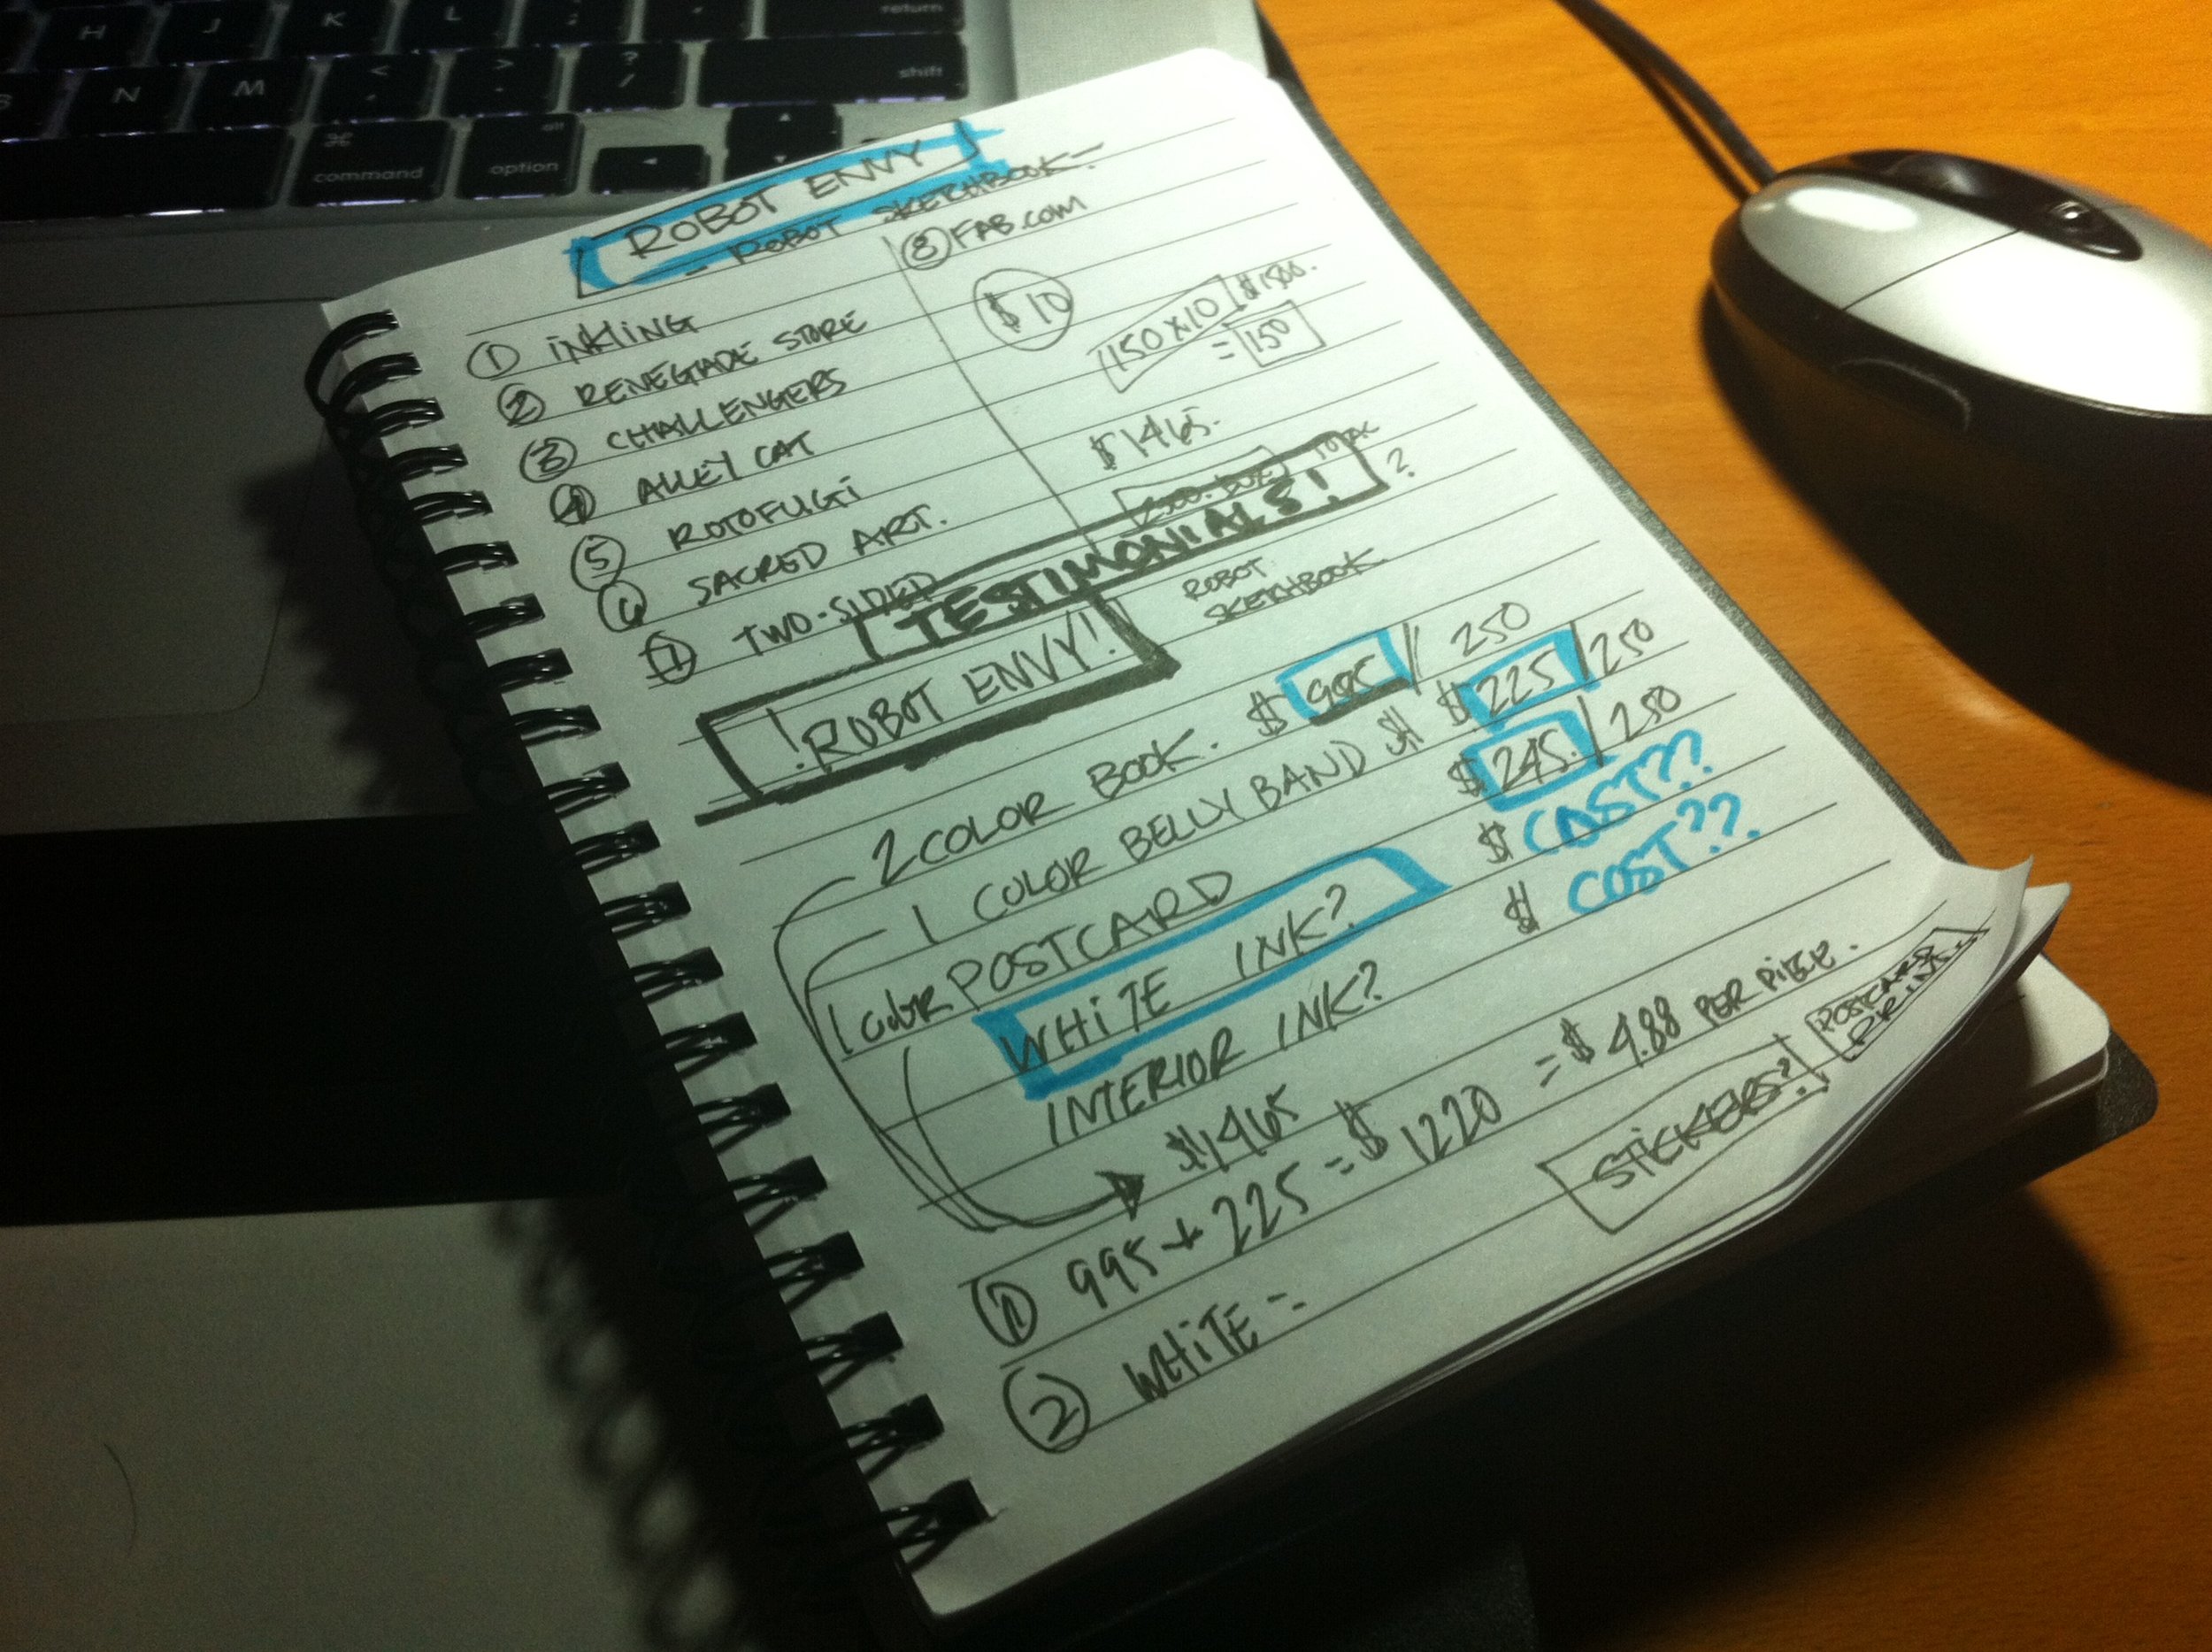 H J K L ; return
N M < , > . ? / shift
⌘ command alt option
ROBOT ENVY
- ROBOT SKETCHBOOK-
① INKLING
② RENEGADE STORE
③ CHALLENGERS
④ ALLEY CAT
⑤ ROTOFUGI
⑥ SACRED ART.
⑦ TWO-SIDED
⑧ FAB.COM
$10
150 X 10 $1500.
= 150
$1465.
TOTAL
TESTIMONIALS! ?
! ROBOT ENVY!
ROBOT
SKETCHBOOK
2 COLOR BOOK. $ 995 / 250
1 COLOR BELLY BAND $ $ 225 / 250
1 COLOR POSTCARD $ 245. / 250
WHITE INK? $ COST??
INTERIOR INK? $ COST??.
$1465
① 995 + 225 = $ 1220 = $ 4.88 PER PIECE.
② WHITE =
STICKERS?
POSTCARD
PRINT.